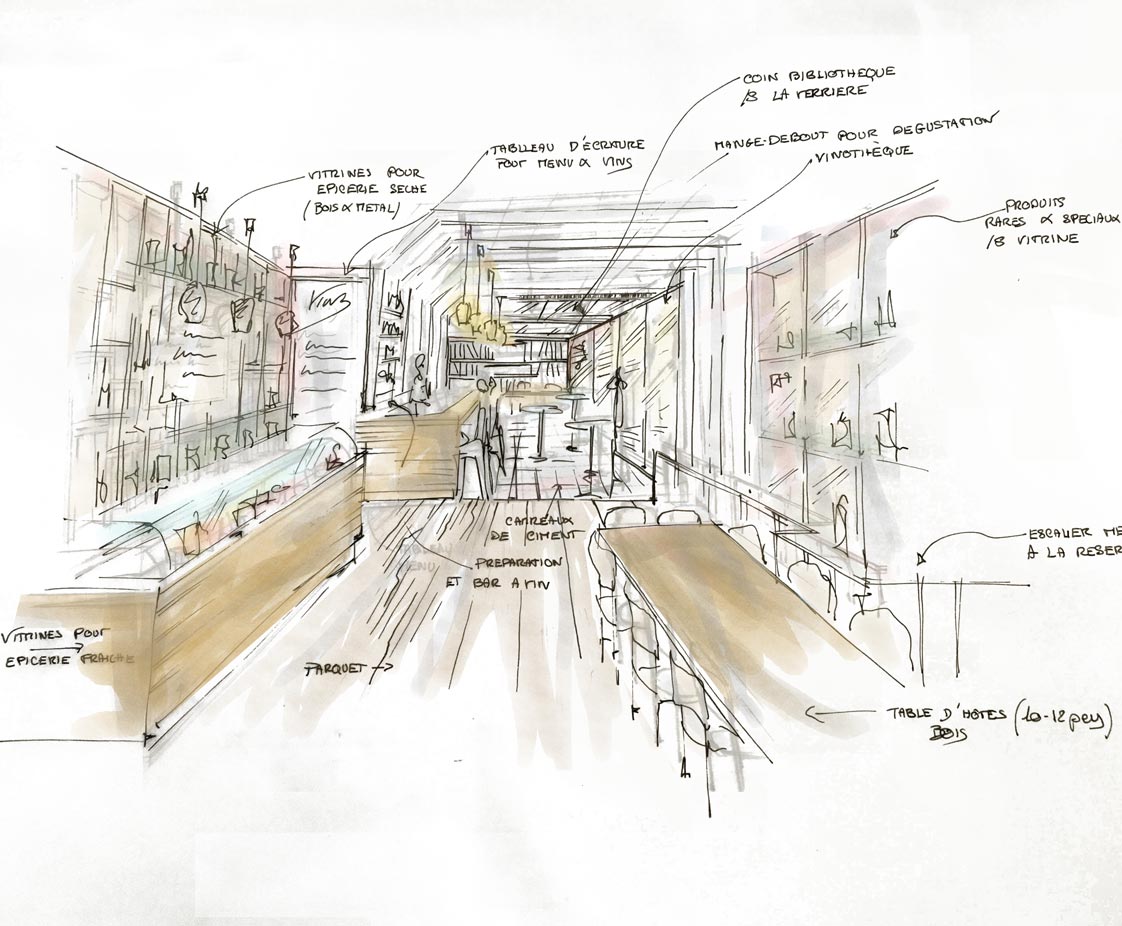 COIN BIBLIOTHEQUE
/S LA VERRIERE
MANGE-DEBOUT POUR DEGUSTATION
VINOTHÈQUE
TABLEAU D'ÉCRITURE
POUR MENU & VINS
VITRINES POUR
EPICERIE SECHE
(BOIS & METAL)
PRODUITS
RARES & SPECIAUX
/S VITRINE
VINS
CARREAUX
DE CIMENT
PREPARATION
ET BAR A VIN
ESCALIER ME
A LA RESER
VITRINES POUR
EPICERIE FRAICHE
PARQUET
TABLE D'HOTES (10-12 pers)
BOIS